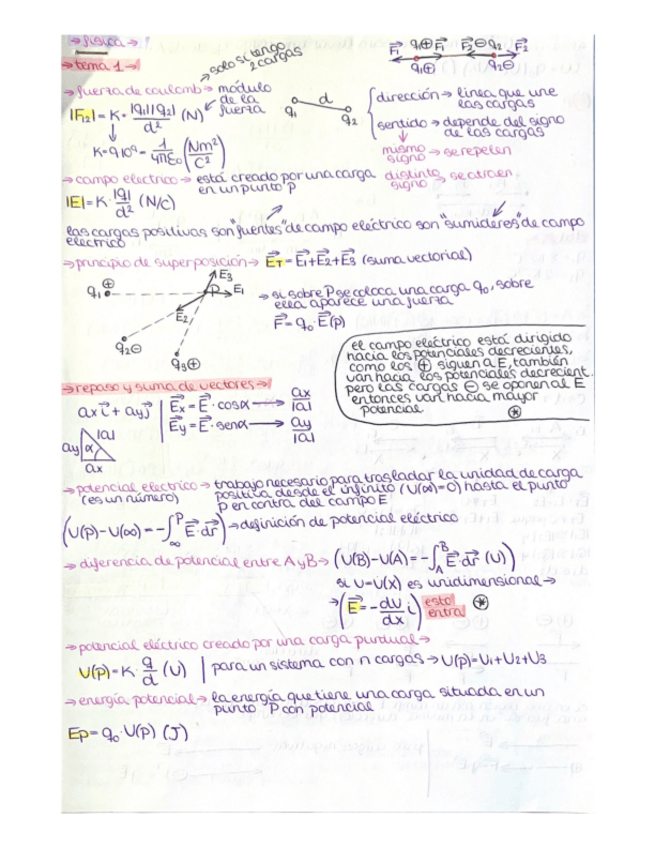 →física→
→tema 1→
→solo si tengo 2 cargas
F₁ q₁⊕F₁ F₂⊖q₂ F₂
q₁⊕ q₂⊖
→fuerza de coulomb→ módulo de la fuerza
|F₁₂| = K· |q₁||q₂| / d² (N)
K=9·10⁹ = 1/4πε₀ (Nm²/C²)
q₁ d q₂
dirección→ línea que une las cargas
sentido→ depende del signo de las cargas
mismo signo → se repelen
distinto signo → se atraen
→campo electrico→ está creado por una carga en un punto P
|E| = K· |q|/d² (N/C)
las cargas positivas son "fuentes" de campo eléctrico son "sumideros" de campo
electrico
→principio de superposición→ E⃗T = E⃗₁+E⃗₂+E⃗₃ (suma vectorial)
q₁⊕ E⃗₃ P E⃗₁ E⃗₂ q₂⊖ q₃⊕
→ si sobre P se coloca una carga q₀, sobre
ella aparece una fuerza
F⃗ = q₀·E⃗(p)
el campo eléctrico está dirigido
hacia los potenciales decrecientes,
como los ⊕ siguen a E, también
van hacia los potenciales decrecient.
pero las cargas ⊖ se oponen al E
entonces van hacia mayor
potencial ⊛
→repaso y suma de vectores→
ax i⃗ + ay j⃗ | E⃗x = E⃗·cosα → ax/|a|
E⃗y = E⃗·senα → ay/|a|
ay |a| α ax
→potencial electrico→ trabajo necesario para trasladar la unidad de carga
(es un número) positiva desde el infinito (U(∞)=0) hasta el punto
P en contra del campo E
(U(P)-U(∞) = -∫∞ᴾ E⃗·dr⃗) → definición de potencial eléctrico
→ diferencia de potencial entre A y B→ (U(B)-U(A) = -∫ₐᴮ E⃗·dr⃗ (U))
si U=U(x) es unidimensional →
→(E⃗ = -dU/dx i) esto entra ⊛
→potencial eléctrico creado por una carga puntual→
U(P)=K· q/d (U) | para un sistema con n cargas → U(P)=U₁+U₂+U₃
→energía potencial→ la energía que tiene una carga situada en un
punto P con potencial
Ep = q₀·U(P) (J)